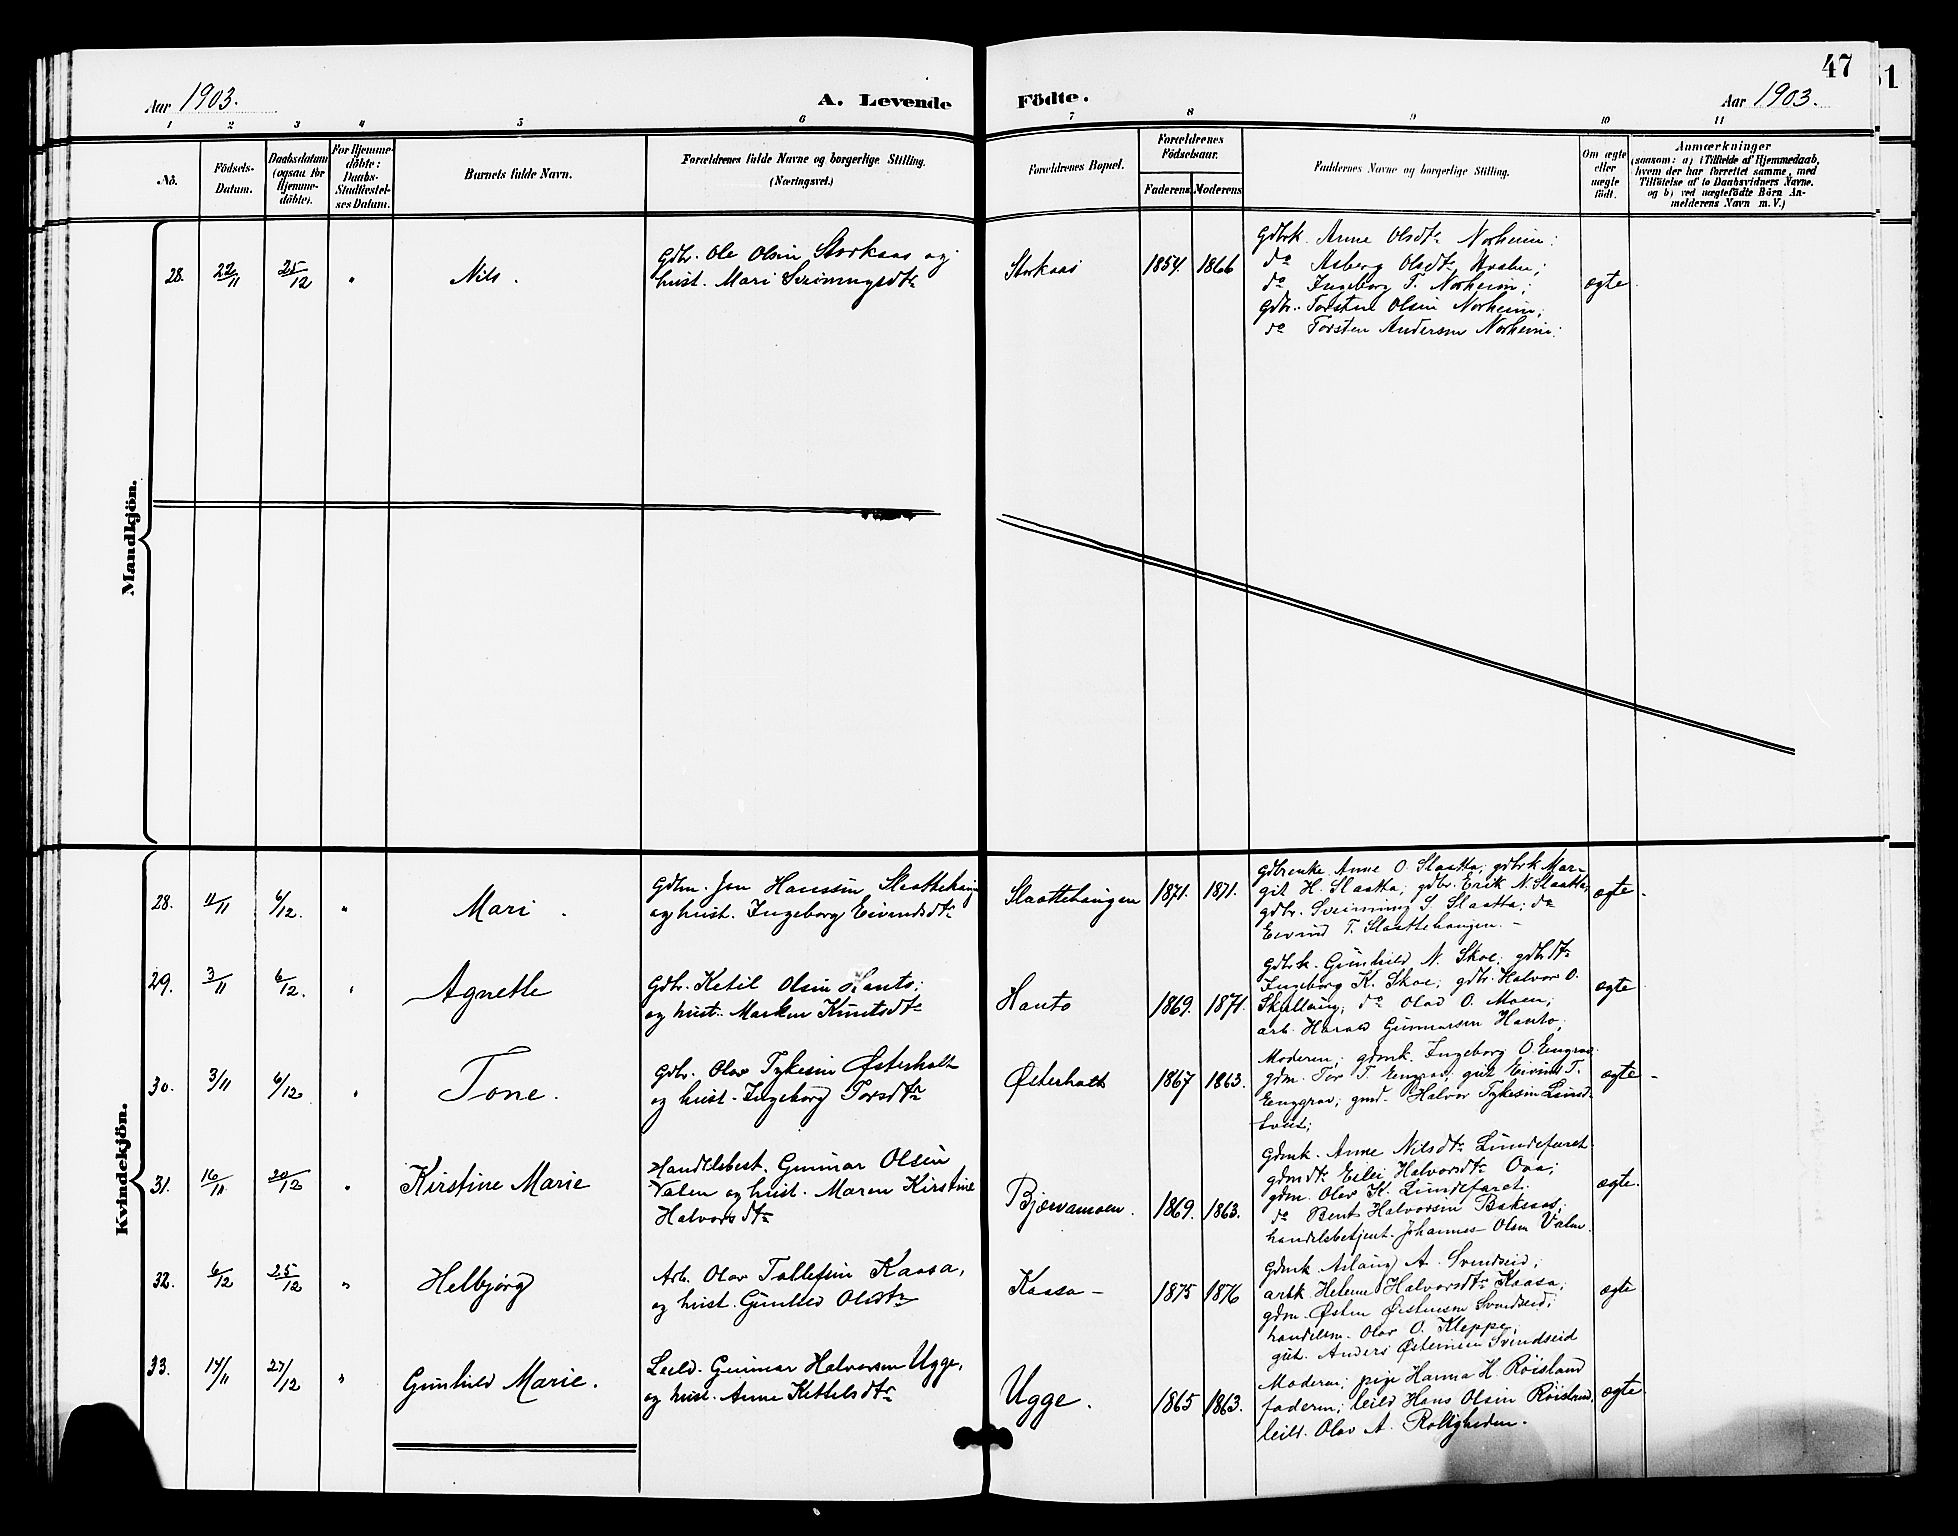 47
Aar 1903.
A. Levende Födte.
Aar 1903.
1 2 3 4 5 6 7 8 9 10 11
No.
Födsels-Datum.
Daabsdatum (ogsaa for Hjemmedöbte).
For Hjemmedöbte: Daabs-Stadfæstelses Datum.
Barnets fulde Navn.
Forældrenes fulde Navne og borgerlige Stilling.
(Næringsvei.)
Forældrenes Bopæl.
Forældrenes Födselsaar.
Faderens Moderens
Faddernes Navne og borgerlige Stilling.
Om ægte eller uægte födt.
Anmærkninger
(saasom: a) i Tilfælde af Hjemmedaab,
hvem der har forrettet samme, med
Tilföielse af to Daabsvidners Navne.
og b) ved uægtefödte Börn An-
melderens Navn m. V.)
Mandkjön.
28. 22/11 25/12 " Nils.
Gdbr. Ole Olsen Storkaas og
hust. Mari Sveinungsdtr
Storkaas 1854. 1866
Gdbrk. Anne Olsdtr Norheim;
do Asberg Olsdtr
do Ingeborg T. Norheim;
Gdbr. Torsten Olsen Norheim;
do Torsten Andersen Norheim.
ægte
Kvindekjön.
28. 11/11 6/12. " Mari.
Gdbm. Jon Hanssen Slaattehaugen
og hust. Ingeborg Eivindsdtr
Slaattehaugen 1871. 1871.
Gdbrenke Anne O. Slaatta, gdbrk Mar-
git H. Slaatta; gdbr. Erik N. Slaatta;
gdbr. Sveinung S. Slaatta; do
Eivind T. Slaattehaugen.
ægte
29. 3/11 6/12. " Agnethe
Gdbr. Ketil Olsen Hanto;
og hust. Marken Knutsdtr
Hanto 1869. 1871.
Gdbrk. Gunhild N. Skoe; gdbrdtr
Ingeborg K. Skoe; gdbr. Halvor O.
do Olav O. Moen;
arb. Harald Gunnarsen Hanto;
ægte
30. 3/11 6/12 " Tone.
Gdbr. Olav Tykesen Østerholt
og hust. Ingeborg Torsdtr
Østerholt 1867 1863.
Moderen; gdmk. Ingeborg O. Engrav
gdm. Tor T. Engrav; gut Eivind T.
Engrav; gmd. Halvor Tykesen Lund-
ægte
31. 16/11 20/12 " Kirstine Marie
Handelsbest. Gunnar Olsen
Valen og hust. Maren Kirstine
Halvorsdtr
Bjervamoen. 1869. 1863.
Gdmk. Anne Nilsdtr Lundefaret
gdmdtr Eilei Halvorsdtr Ovai;
gdm. Olav K. Lundefaret.
do Bent Halvorsen Bakaas;
handelsbetjent. Johannes Olsen Valen.
ægte.
32. 6/12 25/12 " Helbjørg
Arb. Olav Tollefsen Kaasa,
og hust. Gunhild Olsdtr
Kaasa 1875 1876
Gdmk Aslaug A. Svendseid;
arbk. Helene Halvorsdtr Kaasa;
gdm. Østen Østensen Svendseid;
handelsm. Olav O. Kleppe;
gut. Anders Østensen Svendseid
ægte
33. 17/11 27/12 " Gunhild Marie.
Leild. Gunnar Halvorsen Ugge,
og hust. Anne Kettelsdtr
Ugge. 1865 1863.
Moderen; pige Hanna H. Röisland
faderen; leild Hans Olsen Röisland
leild. Olav A. Roligheden.
ægte